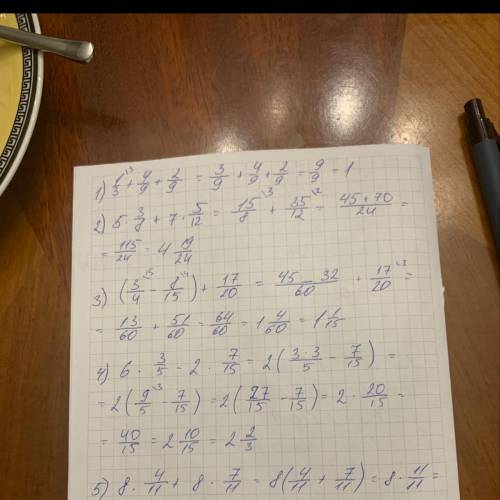 1) 1/3 + 4/9 + 2/9 = 3/9 + 4/9 + 2/9 = 9/9 = 1
2) 5 · 3/8 + 7 · 5/12 = 15/8 + 35/12 = 45+70/24 =
= 115/24 = 4 19/24
3) (3/4 - 8/15) + 17/20 = 45-32/60 + 17/20 =
= 13/60 + 51/60 = 64/60 = 1 4/60 = 1 1/15
4) 6 · 3/5 - 2 · 7/15 = 2(3·3/5 - 7/15) =
= 2(9/5 - 7/15) = 2(27/15 - 7/15) = 2 · 20/15 =
= 40/15 = 2 10/15 = 2 2/3
5) 8 · 4/11 + 8 · 7/11 = 8(4/11 + 7/11) = 8 · 11/11 =